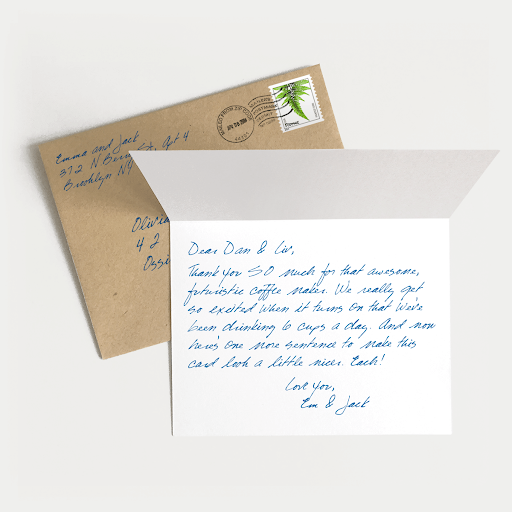 Emma and Jack
372 N Apt 4
Brooklyn NY
Olivia
42
Ossi
Dear Dan & Liv,
Thank you SO much for that awesome,
futuristic coffee maker. We really get
so excited when it turns on that we've
been drinking 6 cups a day. And now
here's one more sentence to make this
card look a little nicer. Each!
Love you,
Em & Jack